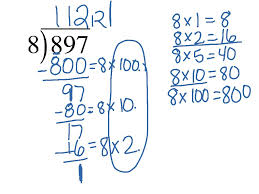 112R1
8)897
-800=8×100.
97
-80=8×10.
17
-16=8×2.
1
8×1=8
8×2=16
8×5=40
8×10=80
8×100=800